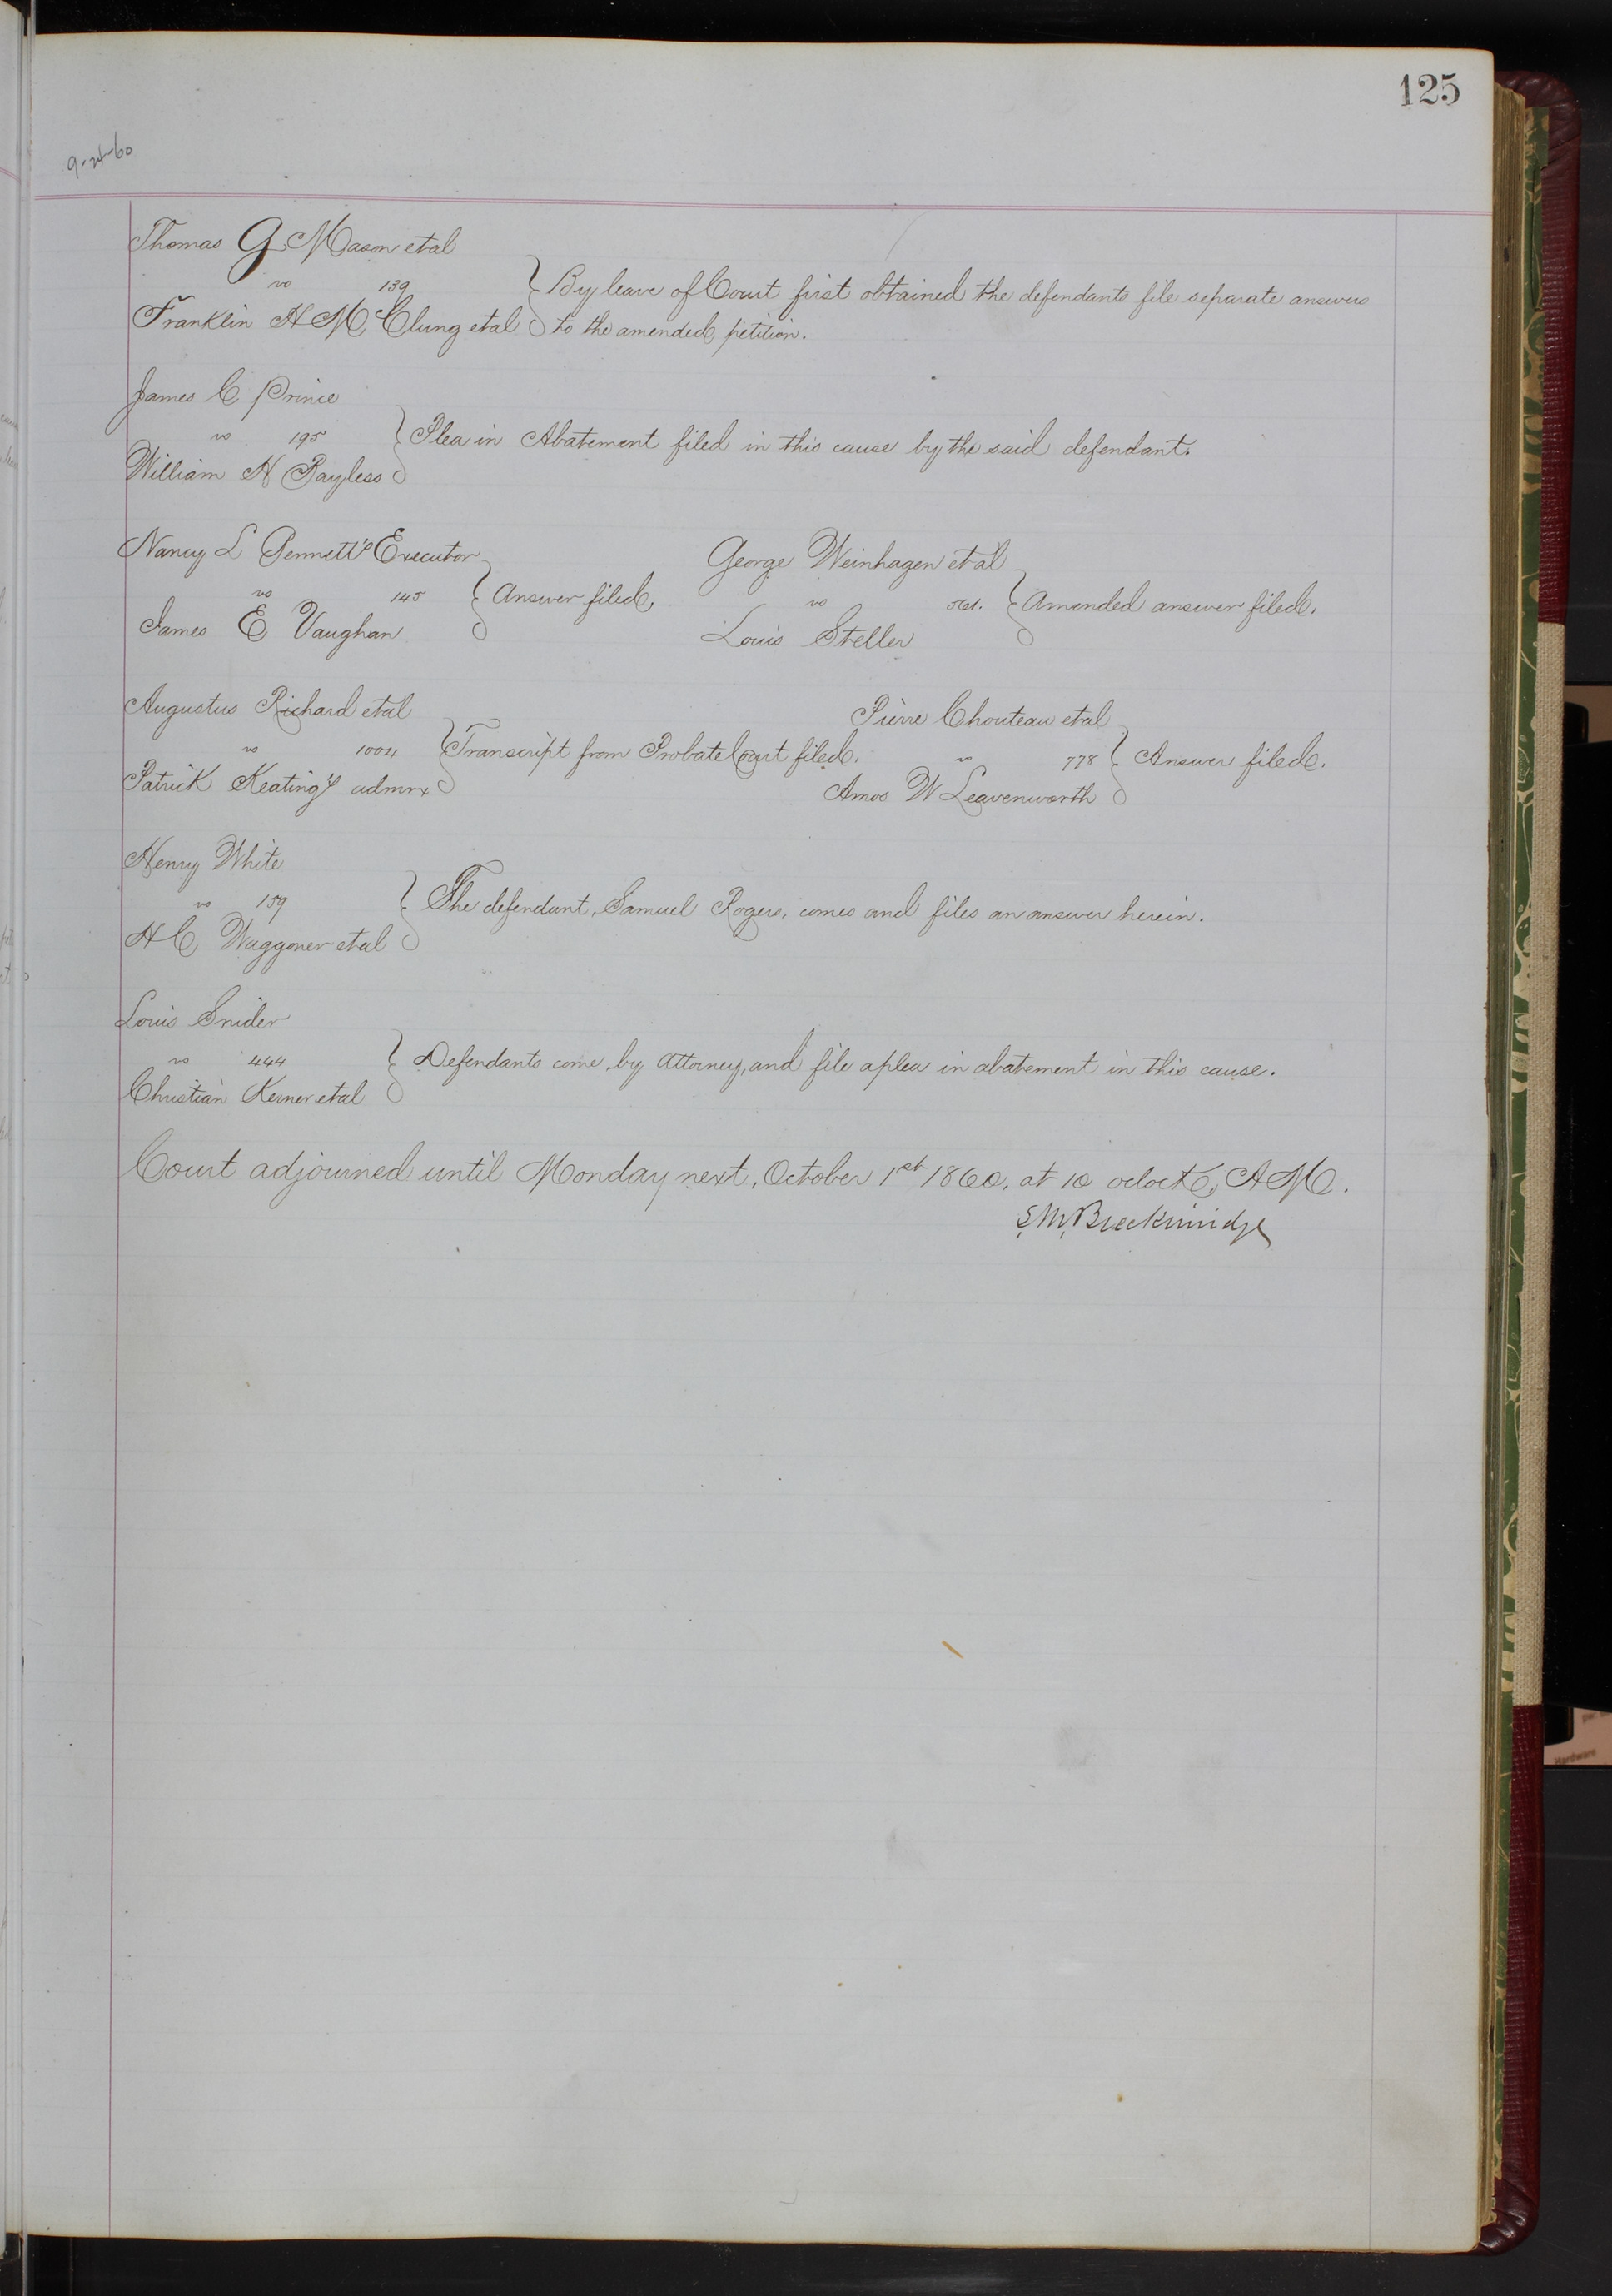 125
9-24-60
Thomas G Mason et al
vs 139
Franklin H McClung et al
By leave of Court first obtained the defendants file separate answers
to the amended petition.
James C Prince
vs 195
William H Bayless
Plea in Abatement filed in this cause by the said defendant.
Nancy L Bennett's Executor
vs 145
James E Vaughan
Answer filed.
George Weinhagen et al
vs 561.
Louis Steller
Amended answer filed.
Augustus Richard et al
vs 1004
Patrick Keating's admrx
Transcript from Probate Court filed.
Pierre Chouteau et al
vs 778
Amos W Leavenworth
Answer filed.
Henry White
vs 159
H C Waggoner et al
The defendant, Samuel Rogers, comes and files an answer herein.
Louis Snider
vs 444
Christian Kerner et al
Defendants come, by Attorney, and file a plea in abatement in this cause.
Court adjourned until Monday next, October 1st 1860, at 10 oclock, A M.
S. M. Breckinridge
Hardware